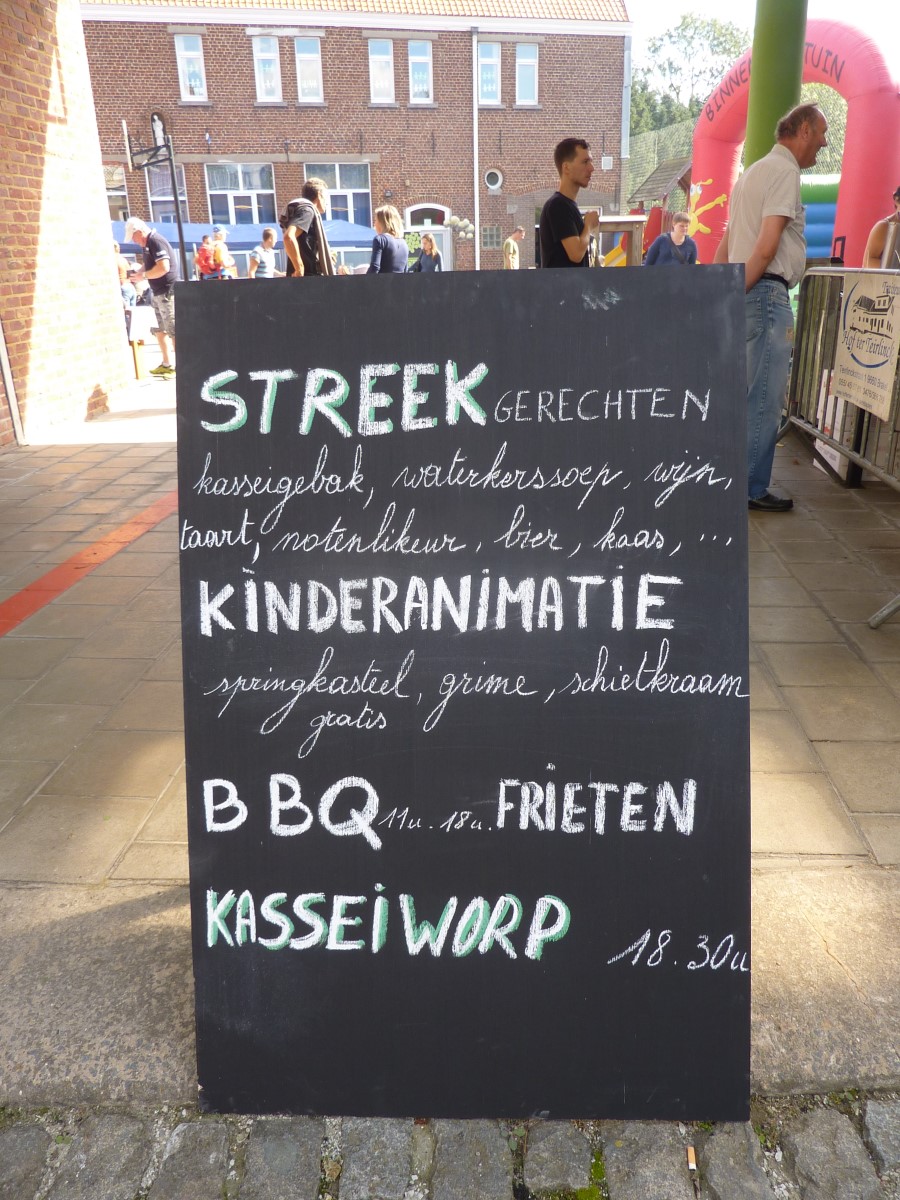 BINNENTUIN
STREEK GERECHTEN
kasseigebak, waterkerssoep, wijn,
taart, notenlikeur, bier, kaas, ...
KINDERANIMATIE
springkasteel, grime, schietkraam
gratis
BBQ 11u. 18u. FRIETEN
KASSEIWORP
18.30u
Hof ter Teirlinck